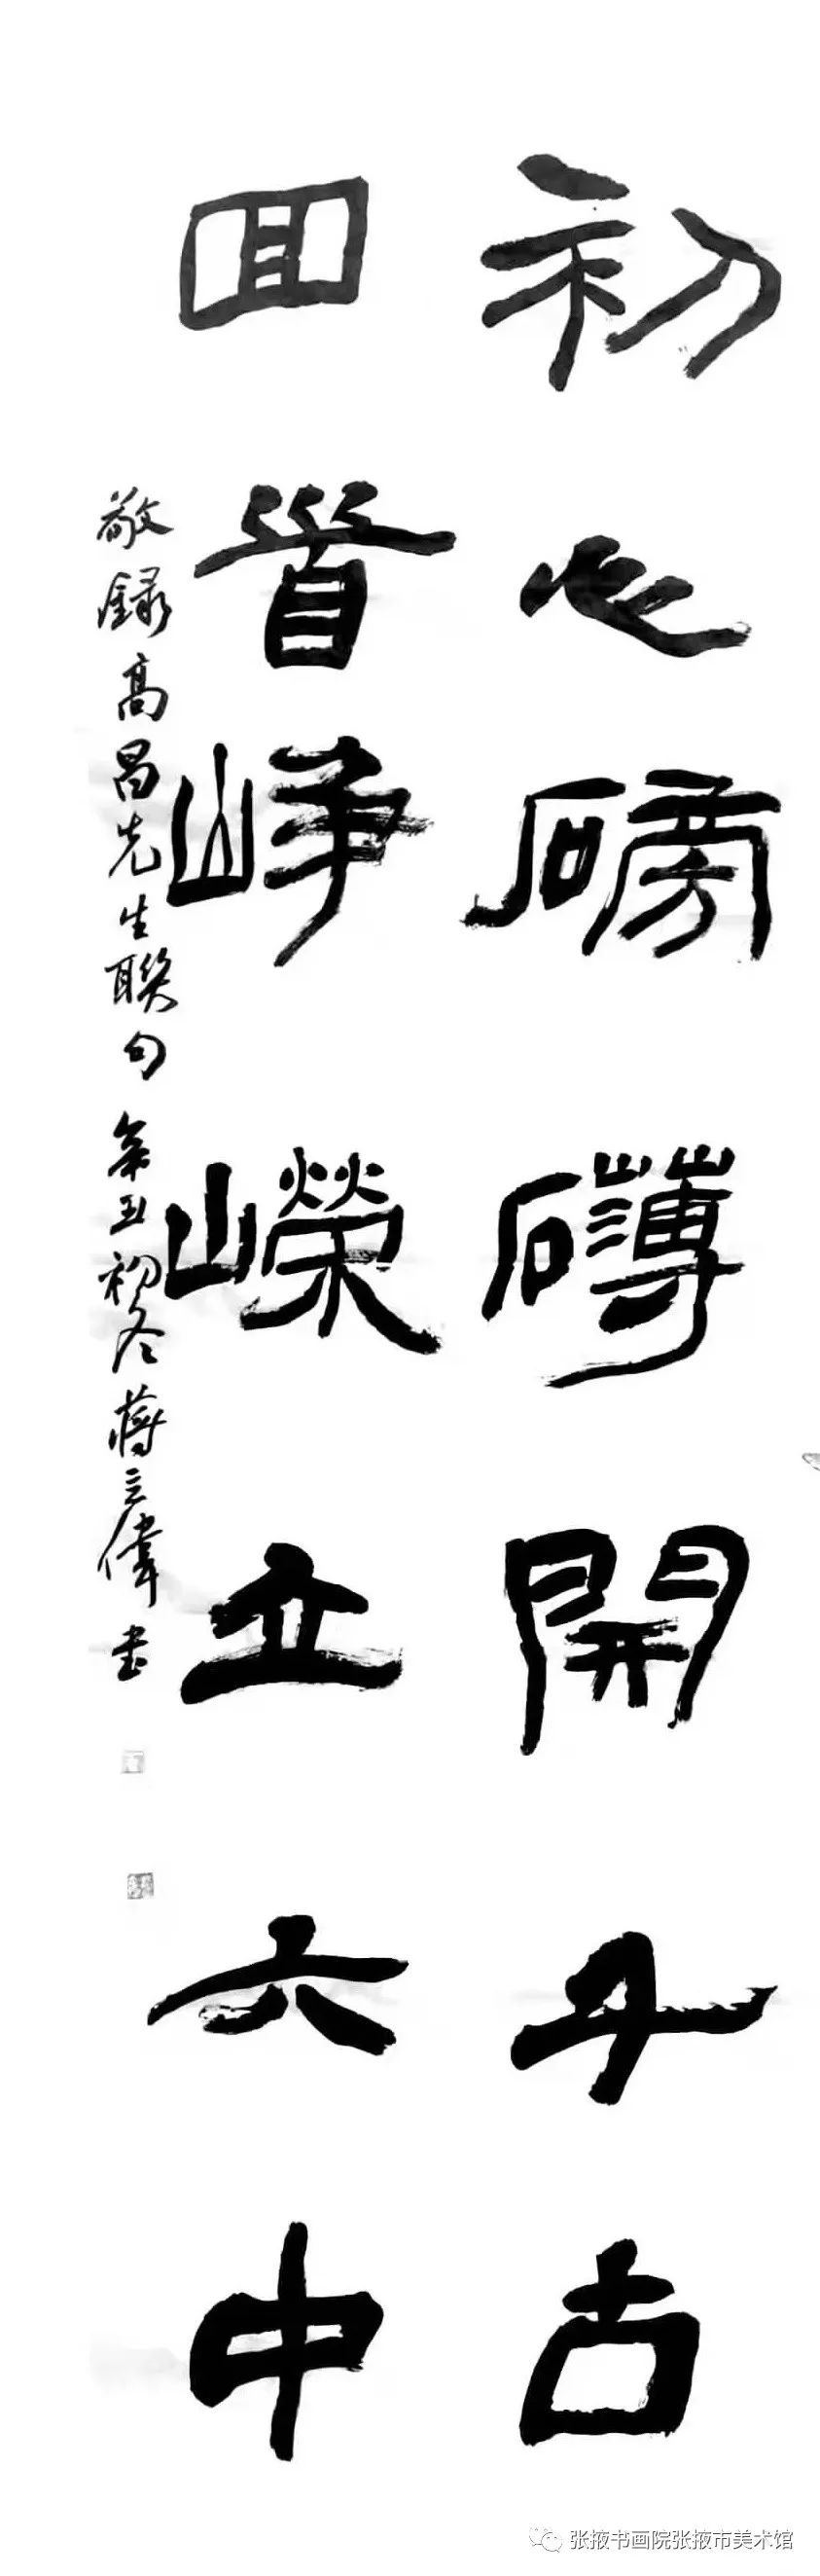 初心磅礴開千古
回首崢嶸立六中
敬録高昌先生聯句 辛丑初冬蔣立偉書
张掖书画院张掖市美术馆